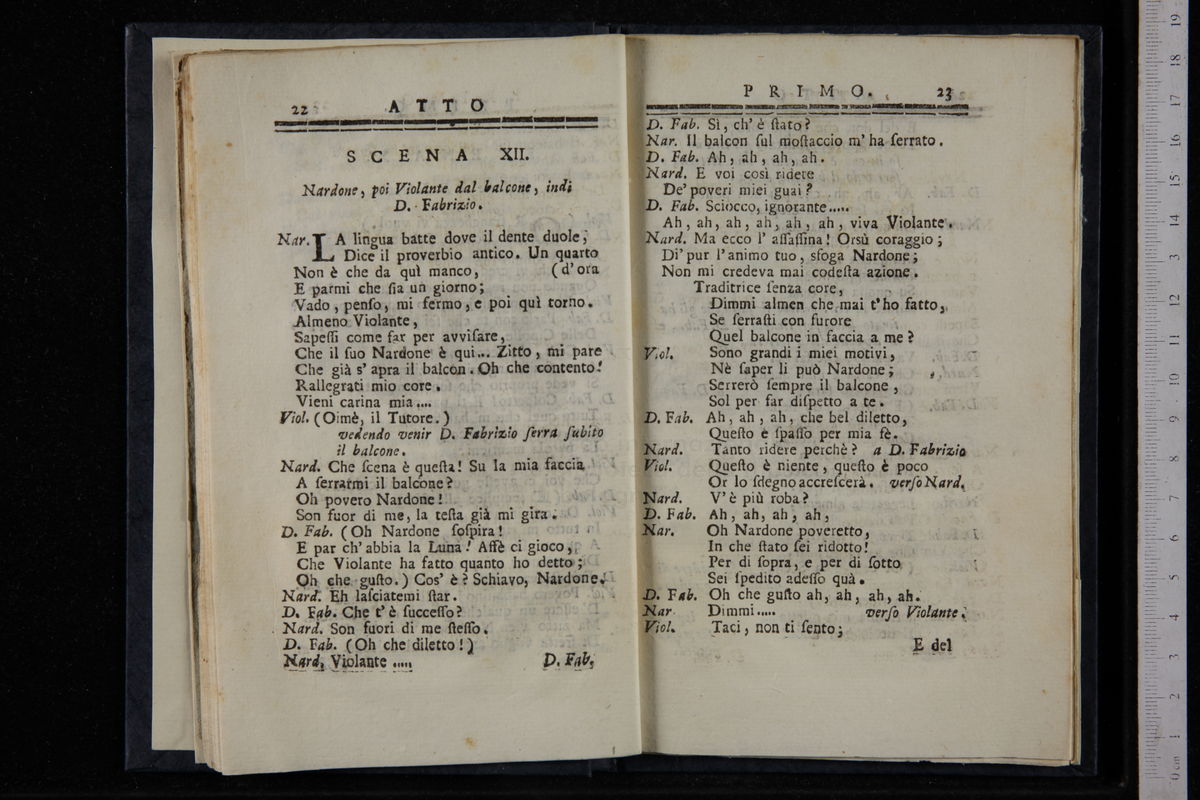 22 ATTO
SCENA XII.
Nardone, poi Violante dal balcone, indi
D. Fabrizio.
Nar. LA lingua batte dove il dente duole,
Dice il proverbio antico. Un quarto
Non è che da quì manco, (d'ora
E parmi che ſia un giorno;
Vado, penſo, mi fermo, e poi quì torno.
Almeno Violante,
Sapeſſi come far per avviſare,
Che il ſuo Nardone è qui... Zitto, mi pare
Che già s'apra il balcon. Oh che contento!
Rallegrati mio core.
Vieni carina mia....
Viol. (Oimè, il Tutore.)
vedendo venir D. Fabrizio ſerra ſubito
il balcone.
Nard. Che ſcena è queſta! Su la mia faccia
A ſerrarmi il balcone?
Oh povero Nardone!
Son fuor di me, la teſta già mi gira.
D. Fab. (Oh Nardone ſoſpira!
E par ch'abbia la Luna! Affè ci gioco,
Che Violante ha fatto quanto ho detto;
Oh che guſto.) Cos'è? Schiavo, Nardone.
Nard. Eh laſciatemi ſtar.
D. Fab. Che t'è ſucceſſo?
Nard. Son fuori di me ſteſſo.
D. Fab. (Oh che diletto!)
Nard. Violante ..... D. Fab.
PRIMO. 23
D. Fab. Sì, ch'è ſtato?
Nar. Il balcon ſul moſtaccio m'ha ſerrato.
D. Fab. Ah, ah, ah, ah.
Nard. E voi così ridere
De' poveri miei guai?
D. Fab. Sciocco, ignorante.....
Ah, ah, ah, ah, ah, ah, viva Violante.
Nard. Ma ecco l'aſſaſſina! Orsù coraggio;
Di' pur l'animo tuo, sfoga Nardone;
Non mi credeva mai codeſta azione.
Traditrice ſenza core,
Dimmi almen che mai t'ho fatto,
Se ſerraſti con furore
Quel balcone in faccia a me?
Viol. Sono grandi i miei motivi,
Nè ſaper li può Nardone;
Serrerò ſempre il balcone,
Sol per far diſpetto a te.
D. Fab. Ah, ah, ah, che bel diletto,
Queſto è ſpaſſo per mia fè.
Nard. Tanto ridere perchè? a D. Fabrizio
Viol. Queſto è niente, queſto è poco
Or lo ſdegno accreſcerà. verſo Nard.
Nard. V'è più roba?
D. Fab. Ah, ah, ah, ah, ah,
Nar. Oh Nardone poveretto,
In che ſtato ſei ridotto!
Per di ſopra, e per di ſotto
Sei ſpedito adeſſo quà.
D. Fab. Oh che guſto ah, ah, ah, ah.
Nar Dimmi..... verſo Violante.
Viol. Taci, non ti ſento;
E del
0 cm 1 2 3 4 5 6 7 8 9 10 11 12 13 14 15 16 17 18 19